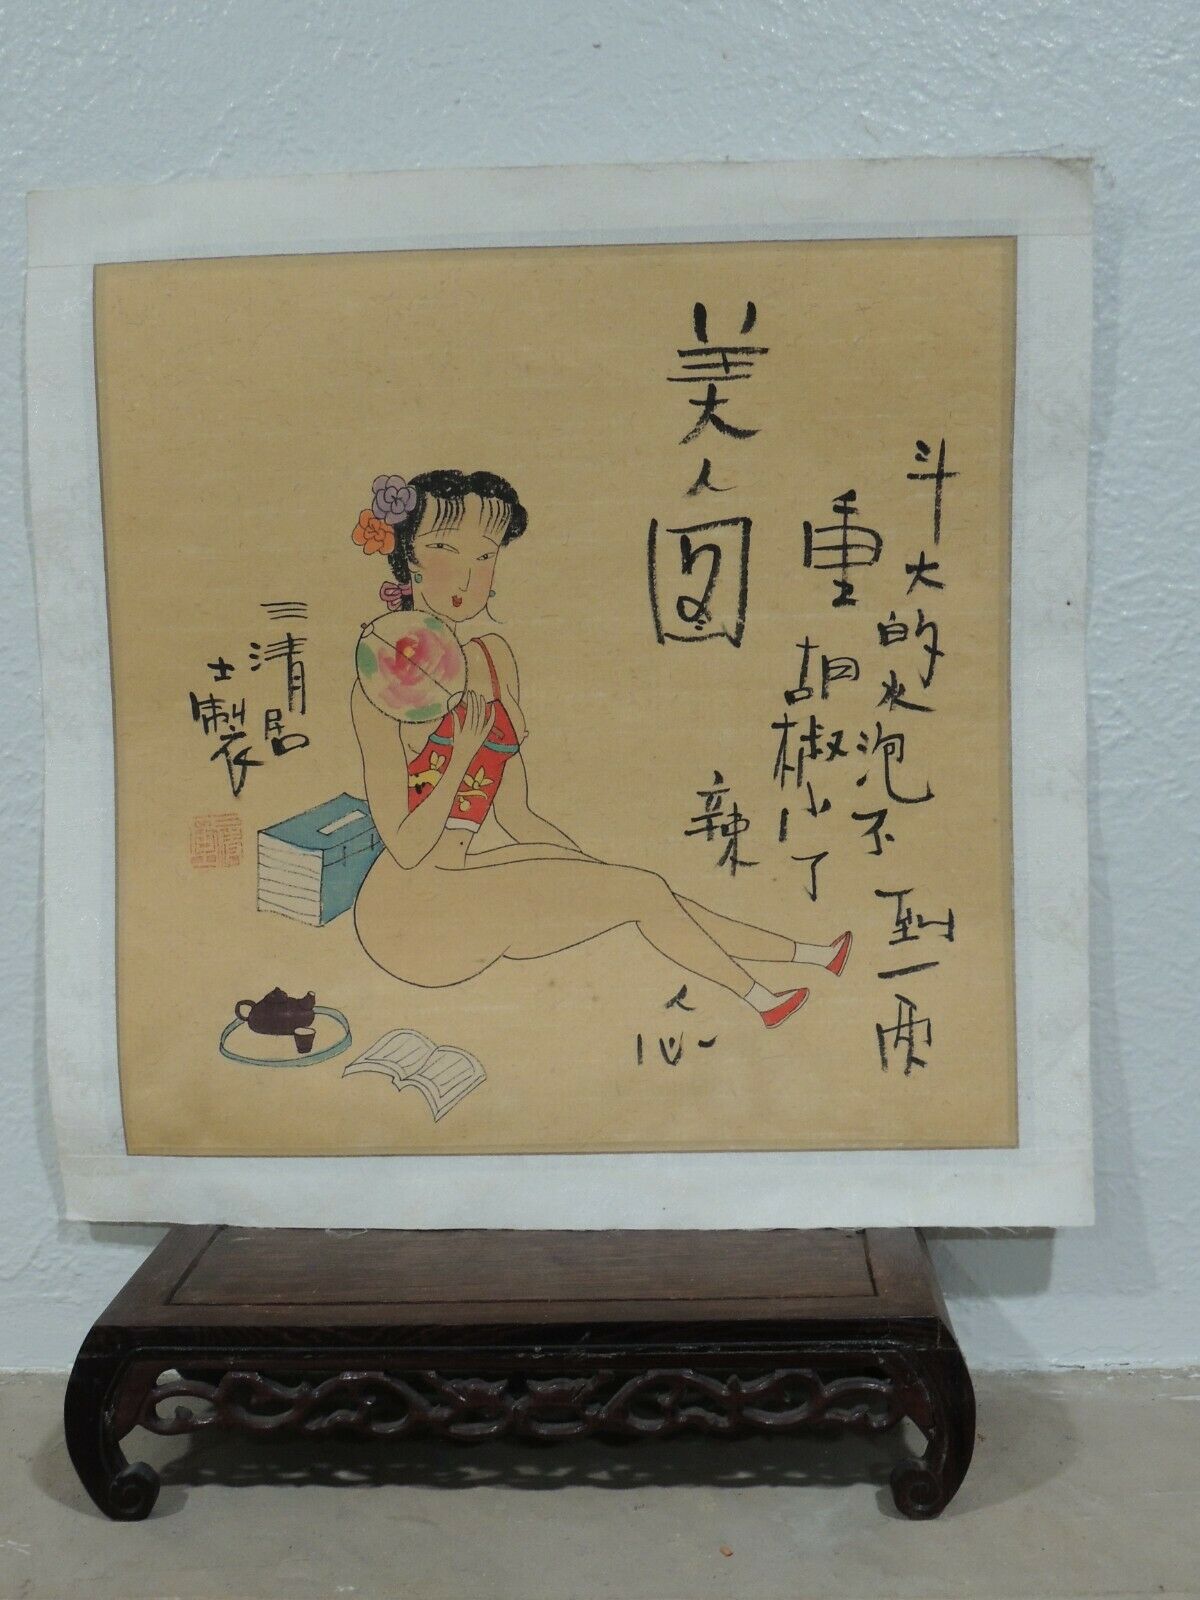 美人图
斗大的水泡不到一两
重胡椒小了辣
人心
三清居
士製